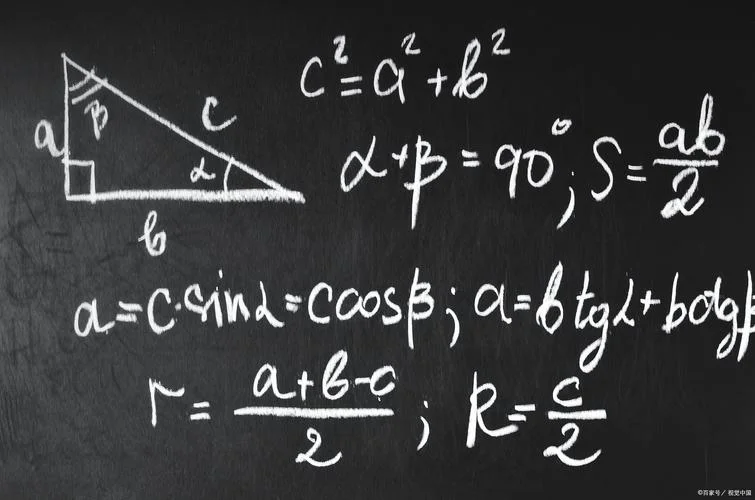 c²=a²+b²
β
c
a
α
α+β=90°; S=ab/2
b
a=c·sinα=cosβ; a=b tgα+bctgβ
r=a+b-c/2; R=c/2
©百家号/视觉中国